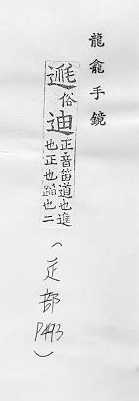 龍龕手鏡
俗迪正音笛道也進
也正也蹈也二
(辵部
P493)